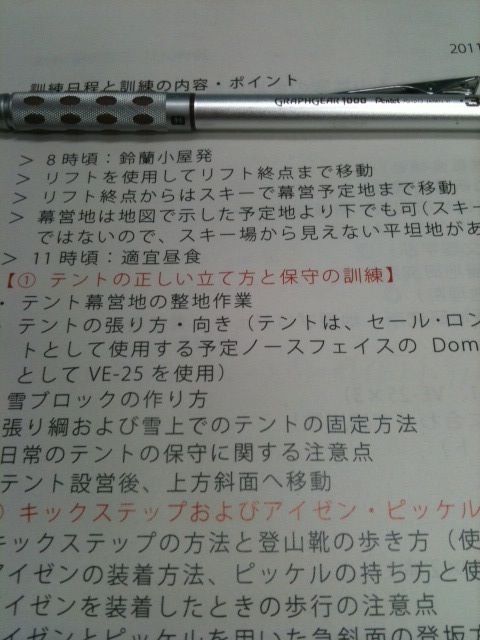 2011
訓練日程と訓練の内容・ポイント
GRAPHGEAR 1000 Pentel
> 8時頃：鈴蘭小屋発
> リフトを使用してリフト終点まで移動
> リフト終点からはスキーで幕営予定地まで移動
> 幕営地は地図で示した予定地より下でも可（スキー
ではないので、スキー場から見えない平坦地があ
> 11時頃：適宜昼食
【① テントの正しい立て方と保守の訓練】
・ テント幕営地の整地作業
テントの張り方・向き（テントは、セール・ロン
トとして使用する予定ノースフェイスの Dom
として VE-25 を使用）
雪ブロックの作り方
張り綱および雪上でのテントの固定方法
日常のテントの保守に関する注意点
テント設営後、上方斜面へ移動
キックステップおよびアイゼン・ピッケル
キックステップの方法と登山靴の歩き方（使
アイゼンの装着方法、ピッケルの持ち方と使
イゼンを装着したときの歩行の注意点
イゼンとピッケルを用いた急斜面の登坂方